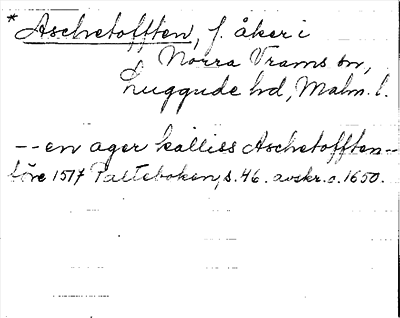 * Aschetofften, f. åker i
Norra Vrams sn,
Luggude hd, Malm. l.
-- en ager kalliss Aschetofften --
före 1517 Palteboken, s. 46. avskr. c. 1650.